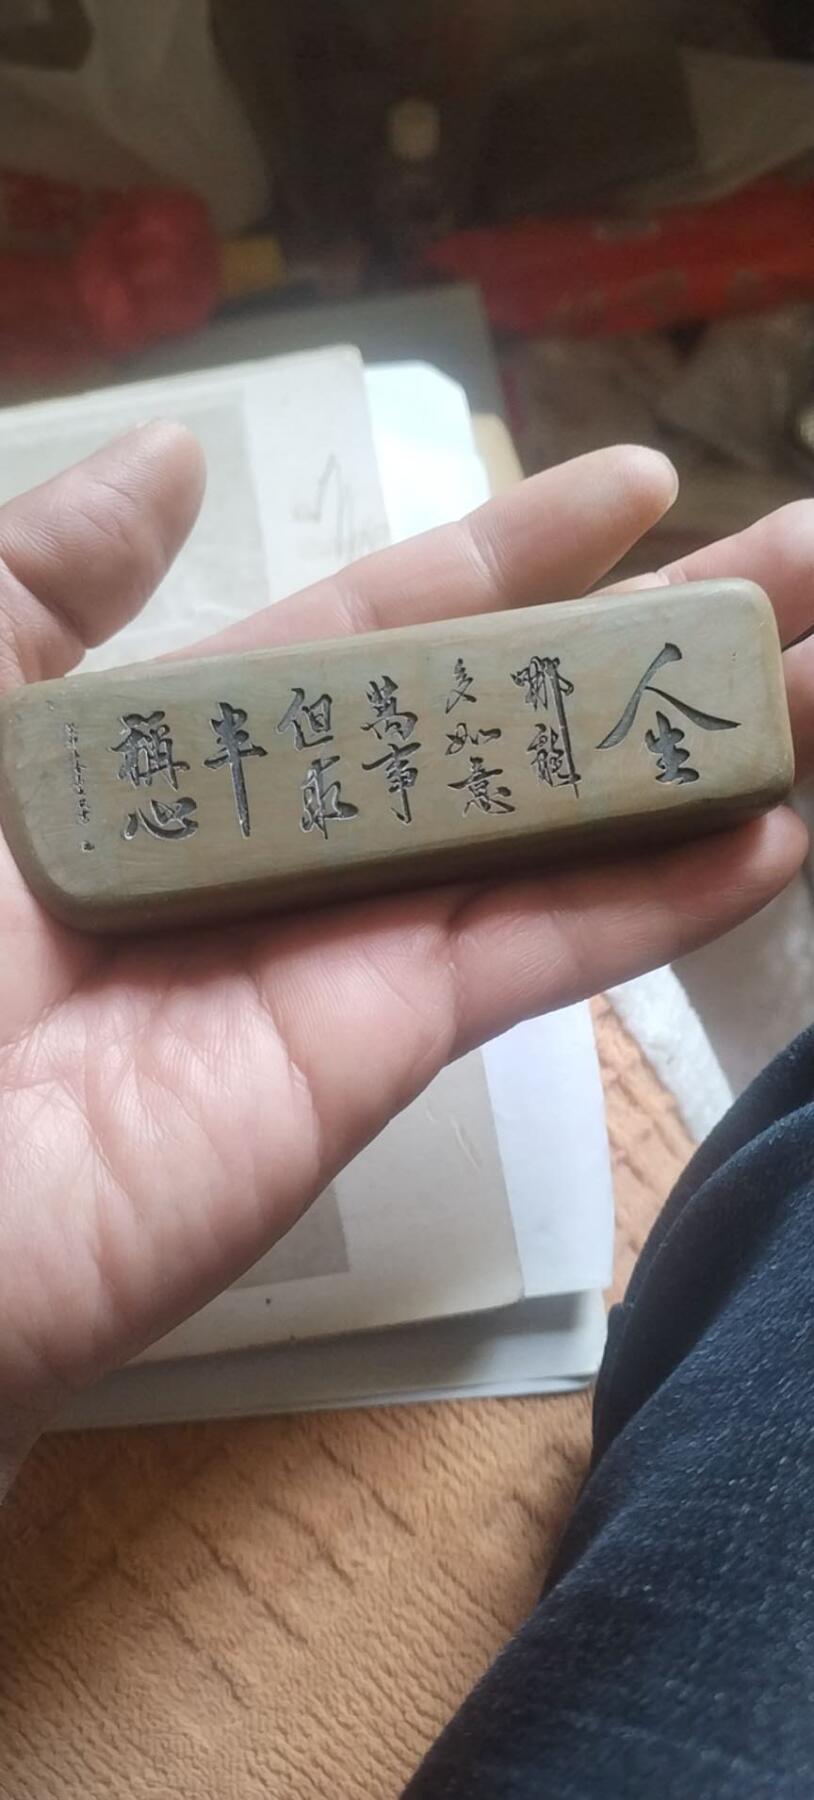 人生
哪能
多如意
萬事
但求
半
稱心